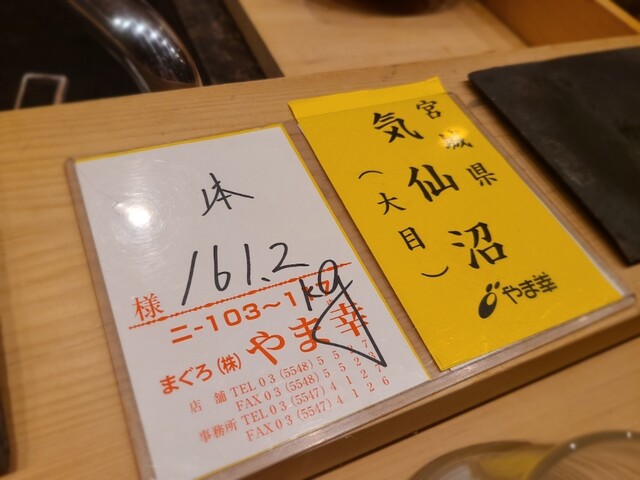 本
161.2
kg
様
ニ-103~1
まぐろ(株)やま幸
店舗 TEL 03(5548)5527
FAX 03(5548)5523
事務所 TEL 03(5547)4127
FAX 03(5547)4126
宮城県
気仙沼
(大目)
やま幸